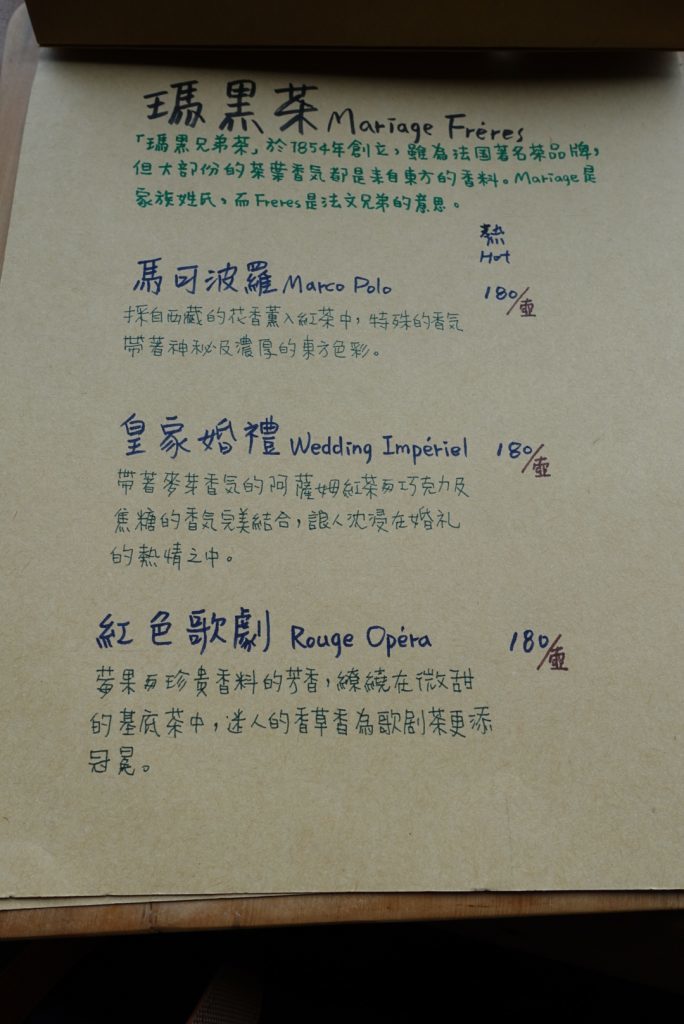 瑪黑茶 Mariage Fréres
「瑪黑兄弟茶」於1854年創立，雖為法国著名茶品牌，
但大部份的茶葉香気都是來自東方的香料。Mariage是
家族姓氏，而Freres是法文兄弟的意思。
熱
Hot
馬可波羅 Marco Polo 180/壺
採自西藏的花香薰入紅茶中，特殊的香気
帶著神秘及濃厚的東方色彩。
皇家婚禮 Wedding Impériel 180/壺
帶著麥芽香気的阿薩姆紅茶與巧克力及
焦糖的香気完美結合，讓人沈浸在婚礼
的熱情之中。
紅色歌劇 Rouge Opéra 180/壺
莓果與珍貴香料的芳香，繚繞在微甜
的基底茶中，迷人的香草香為歌劇茶更添
冠冕。